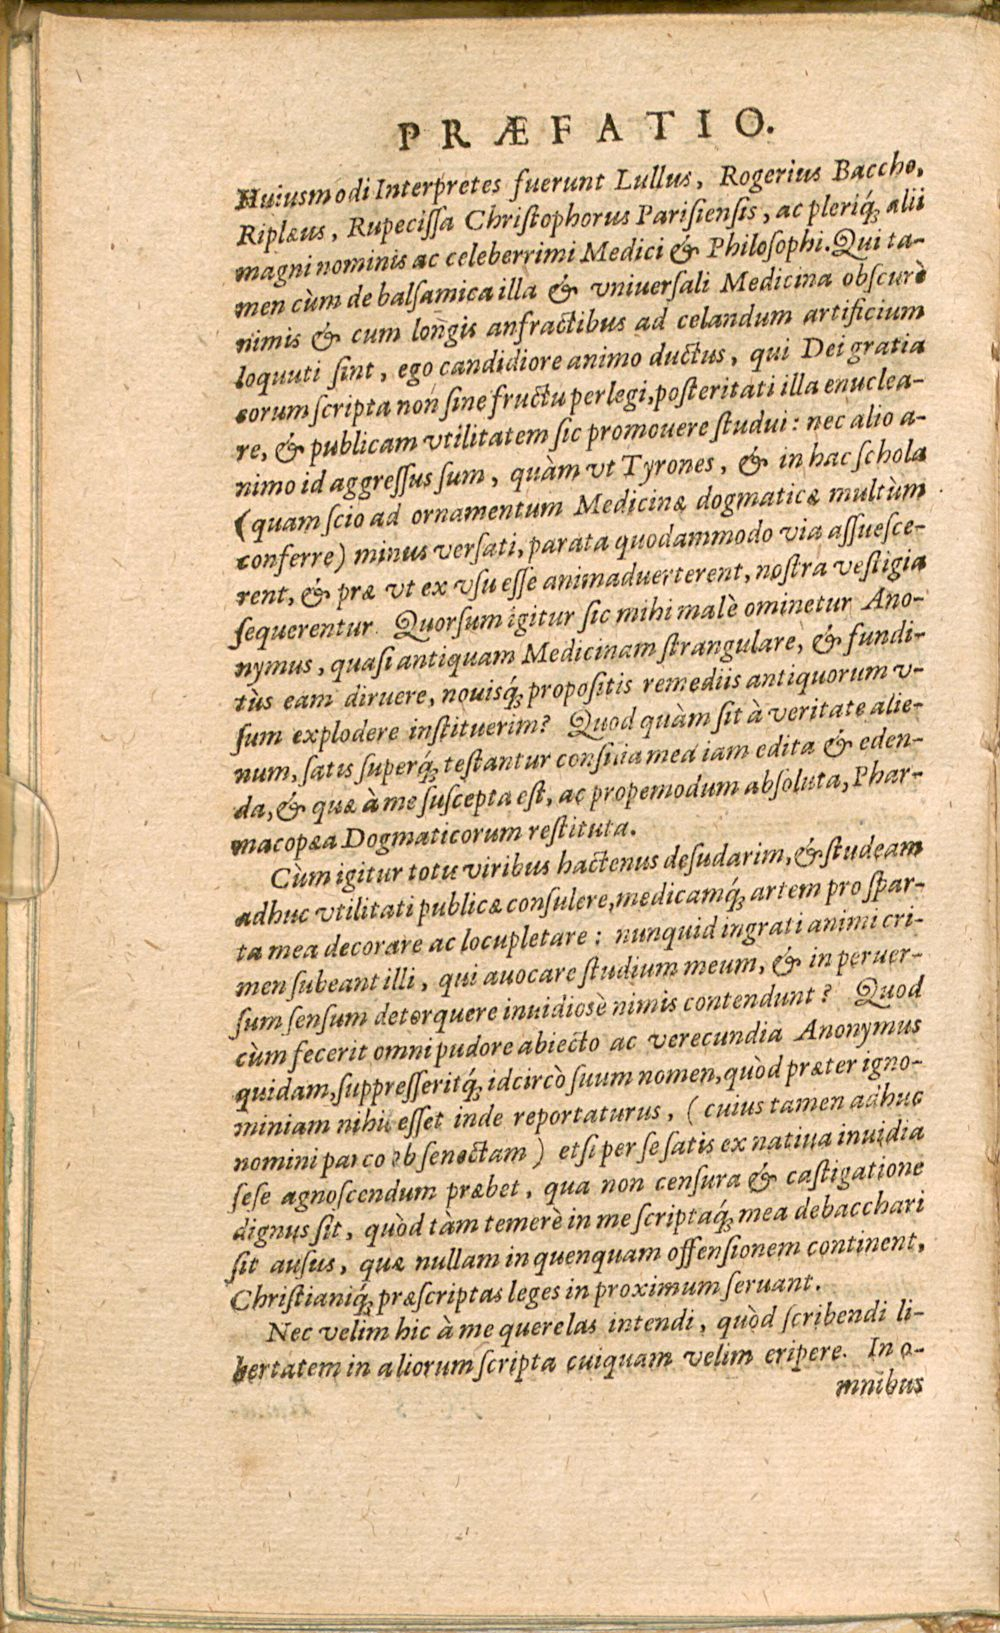 PRÆFATIO.
Huiusmodi Interpretes fuerunt Lullus, Rogerius Baccho,
Riplæus, Rupecissa Christophorus Parisiensis, ac pleriq́; alii
magni nominis ac celeberrimi Medici & Philosophi. Qui ta-
men cùm de balsamica illa & vniuersali Medicina obscurè
nimis & cum longis anfractibus ad celandum artificium
loquuti sint, ego candidiore animo ductus, qui Dei gratia
eorum scripta non sine fructu perlegi, posteritati illa enuclea-
re, & publicam vtilitatem sic promouere studui: nec alio a-
nimo id aggressus sum, quàm vt Tyrones, & in hac schola
(quam scio ad ornamentum Medicinæ dogmaticæ multùm
conferre) minus versati, parata quodammodo via assuesce-
rent, & præ vt ex vsu esse animaduerterent, nostra vestigia
sequerentur. Quorsum igitur sic mihi malè ominetur Ano-
nymus, quasi antiquam Medicinam strangulare, & fundi-
tùs eam diruere, nouisq́; propositis remediis antiquorum v-
sum explodere instituerim? Quod quàm sit à veritate alie-
num, satis superq́; testantur consilia mea iam edita & eden-
da, & quæ à me suscepta est, ac propemodum absoluta, Phar-
macopæa Dogmaticorum restituta.
Cùm igitur totu viribus hactenus desudarim, & studeam
adhuc vtilitati publicæ consulere, medicamq́; artem pro spar-
ta mea decorare ac locupletare: nunquid ingrati animi cri-
men subeant illi, qui auocare studium meum, & in peruer-
sum sensum detorquere inuidiosè nimis contendunt? Quod
cùm fecerit omni pudore abiecto ac verecundia Anonymus
quidam, suppresseritq́; idcircò suum nomen, quòd præter igno-
miniam nihil esset inde reportaturus, (cuius tamen adhuc
nomini parco ob senectam) etsi per se satis ex natiua inuidia
sese agnoscendum præbet, qua non censura & castigatione
dignus sit, quòd tàm temerè in me scriptaq́; mea debacchari
sit ausus, quæ nullam in quenquam offensionem continent,
Christianiq́; præscriptas leges in proximum seruant.
Nec velim hic à me querelas intendi, quòd scribendi li-
bertatem in aliorum scripta cuiquam velim eripere. In o-
mnibus